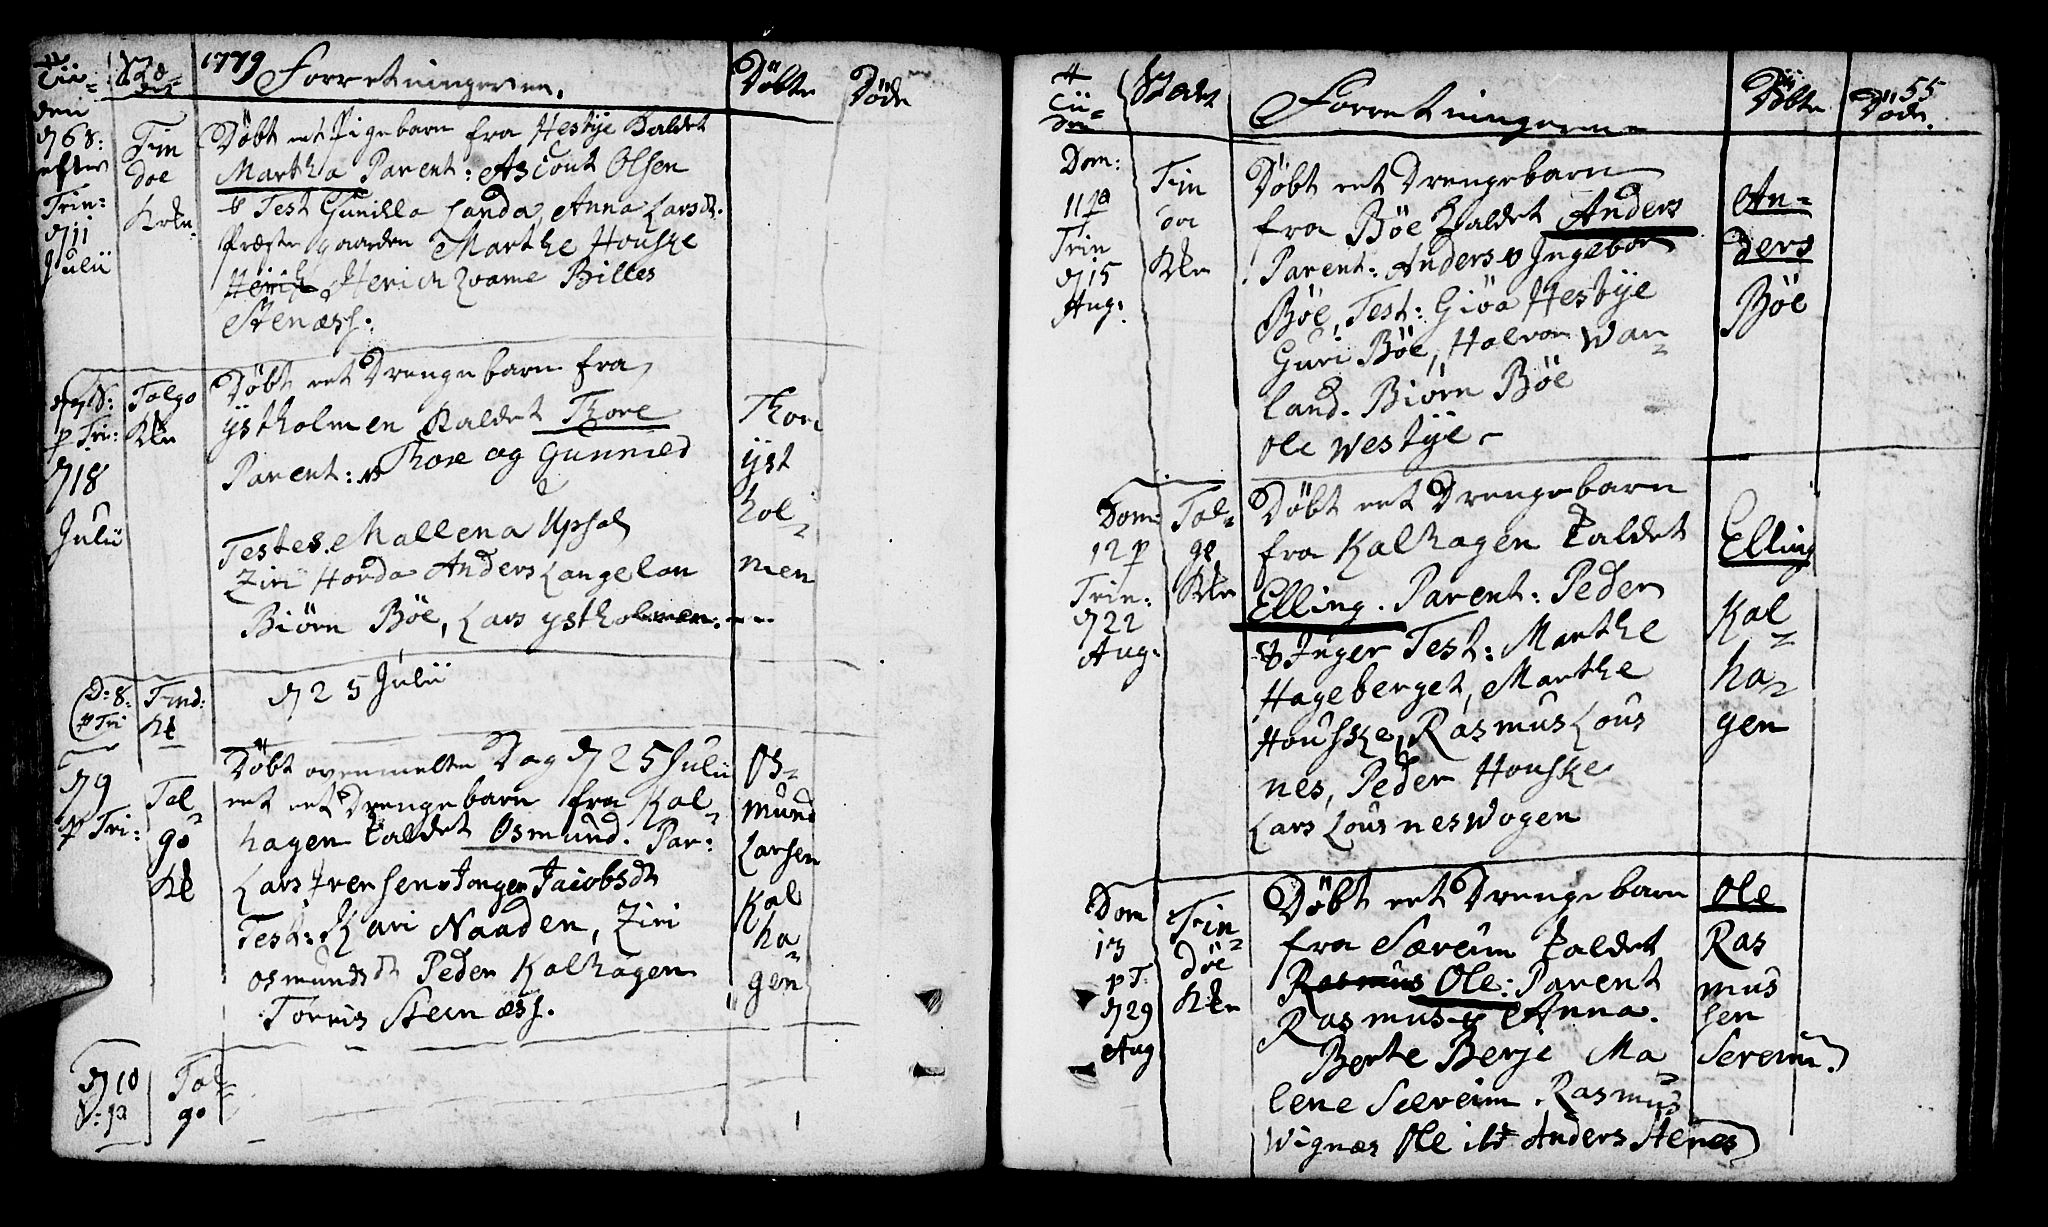 Tii- Ste- 1779 Forretningerne. Döbte Döde
den det
d 6 S:
efter
Trin:
d 11
Julii
Fin
doe
Krke
Döbt eet Pigebarn fra Hestye Kaldet
Martha Parent: Aslout Olsen
Test Gunilla Landa, Anna Larsdt.
Præstegaarden Marthe Houske
Henrich Henrich Qvame Billes
Stenæss.
d 7 S:
p Tri:
d 18
Julii
Talgo
Kke
Döbt eet Drengebarn fra
ystholmen Kaldet Thore
Parent: Thore og Gunnild
Testes. Mallena Upsal
Ziri Horda Anders Langelan
Biörn Böe, Lars ystholmen.
Thore
yst
hol-
men
D: 8.
p Tri
Find:
Kk
d 25 Julii
d 9
p Tri:
Tal-
go
Kk
Döbt ovenmelte Dag d 25 Julii
eet eet Drengebarn fra Kal-
hagen kaldet Osmund. Par:
Lars Ivensen Inger Jacobsdt
Test: Kari Naaden, Ziri
osmundsdt Peder Kalhagen
Torris Steinæss.
Os-
mund
Larsen
Kal
ha-
gen
d 10
Tal-
go
Tii-
den
Stedet Forretningerne Döbte Döde.
55
Dom:
11 p
Trin
d 15
Aug:
Fin
doe
Kke
Döbt eet Drengebarn
fra Böe Kaldet Anders
Parent: Anders Ingebor
Böe, Test: Giöa Hestye
Guri Böe, Halvor War-
land. Biörn Böe
Ole Westye.
An-
ders
Böe
Dom:
12 p
Trin:
d 22
Aug:
Tal-
ge
Kke
Döbt eet Drengebarn
fra Kalhagen kaldet
Elling. Parent: Peder
Inger Test: Marthe
Hageberget, Marthe
Houske, Rasmus Lous
nes, Peder Houske
Lars Lousneswogen
Elling
Kal-
ha-
gen
Dom
13
p T
d 29
Aug
Fin-
döe
Kke
Döbt eet Drengebarn
fra Særeim kaldet
Rasmus Ole: Parent
Rasmus Anna.
Berte Berje Ma-
lene Særeim Rasmus
Wignæs Ole ibd Anders Stenes
Ole
Ras
mus
sen
Sereim.